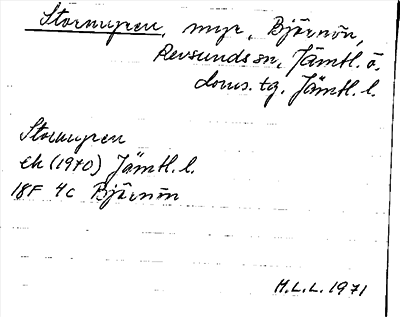 Stormyren, myr, Björnön,
Revsunds sn, Jämtl. ö.
doms. tg. Jämtl. l.
Stormyren
ek (1970) Jämtl. l.
18F 4c Björnön
H.L.L. 1971